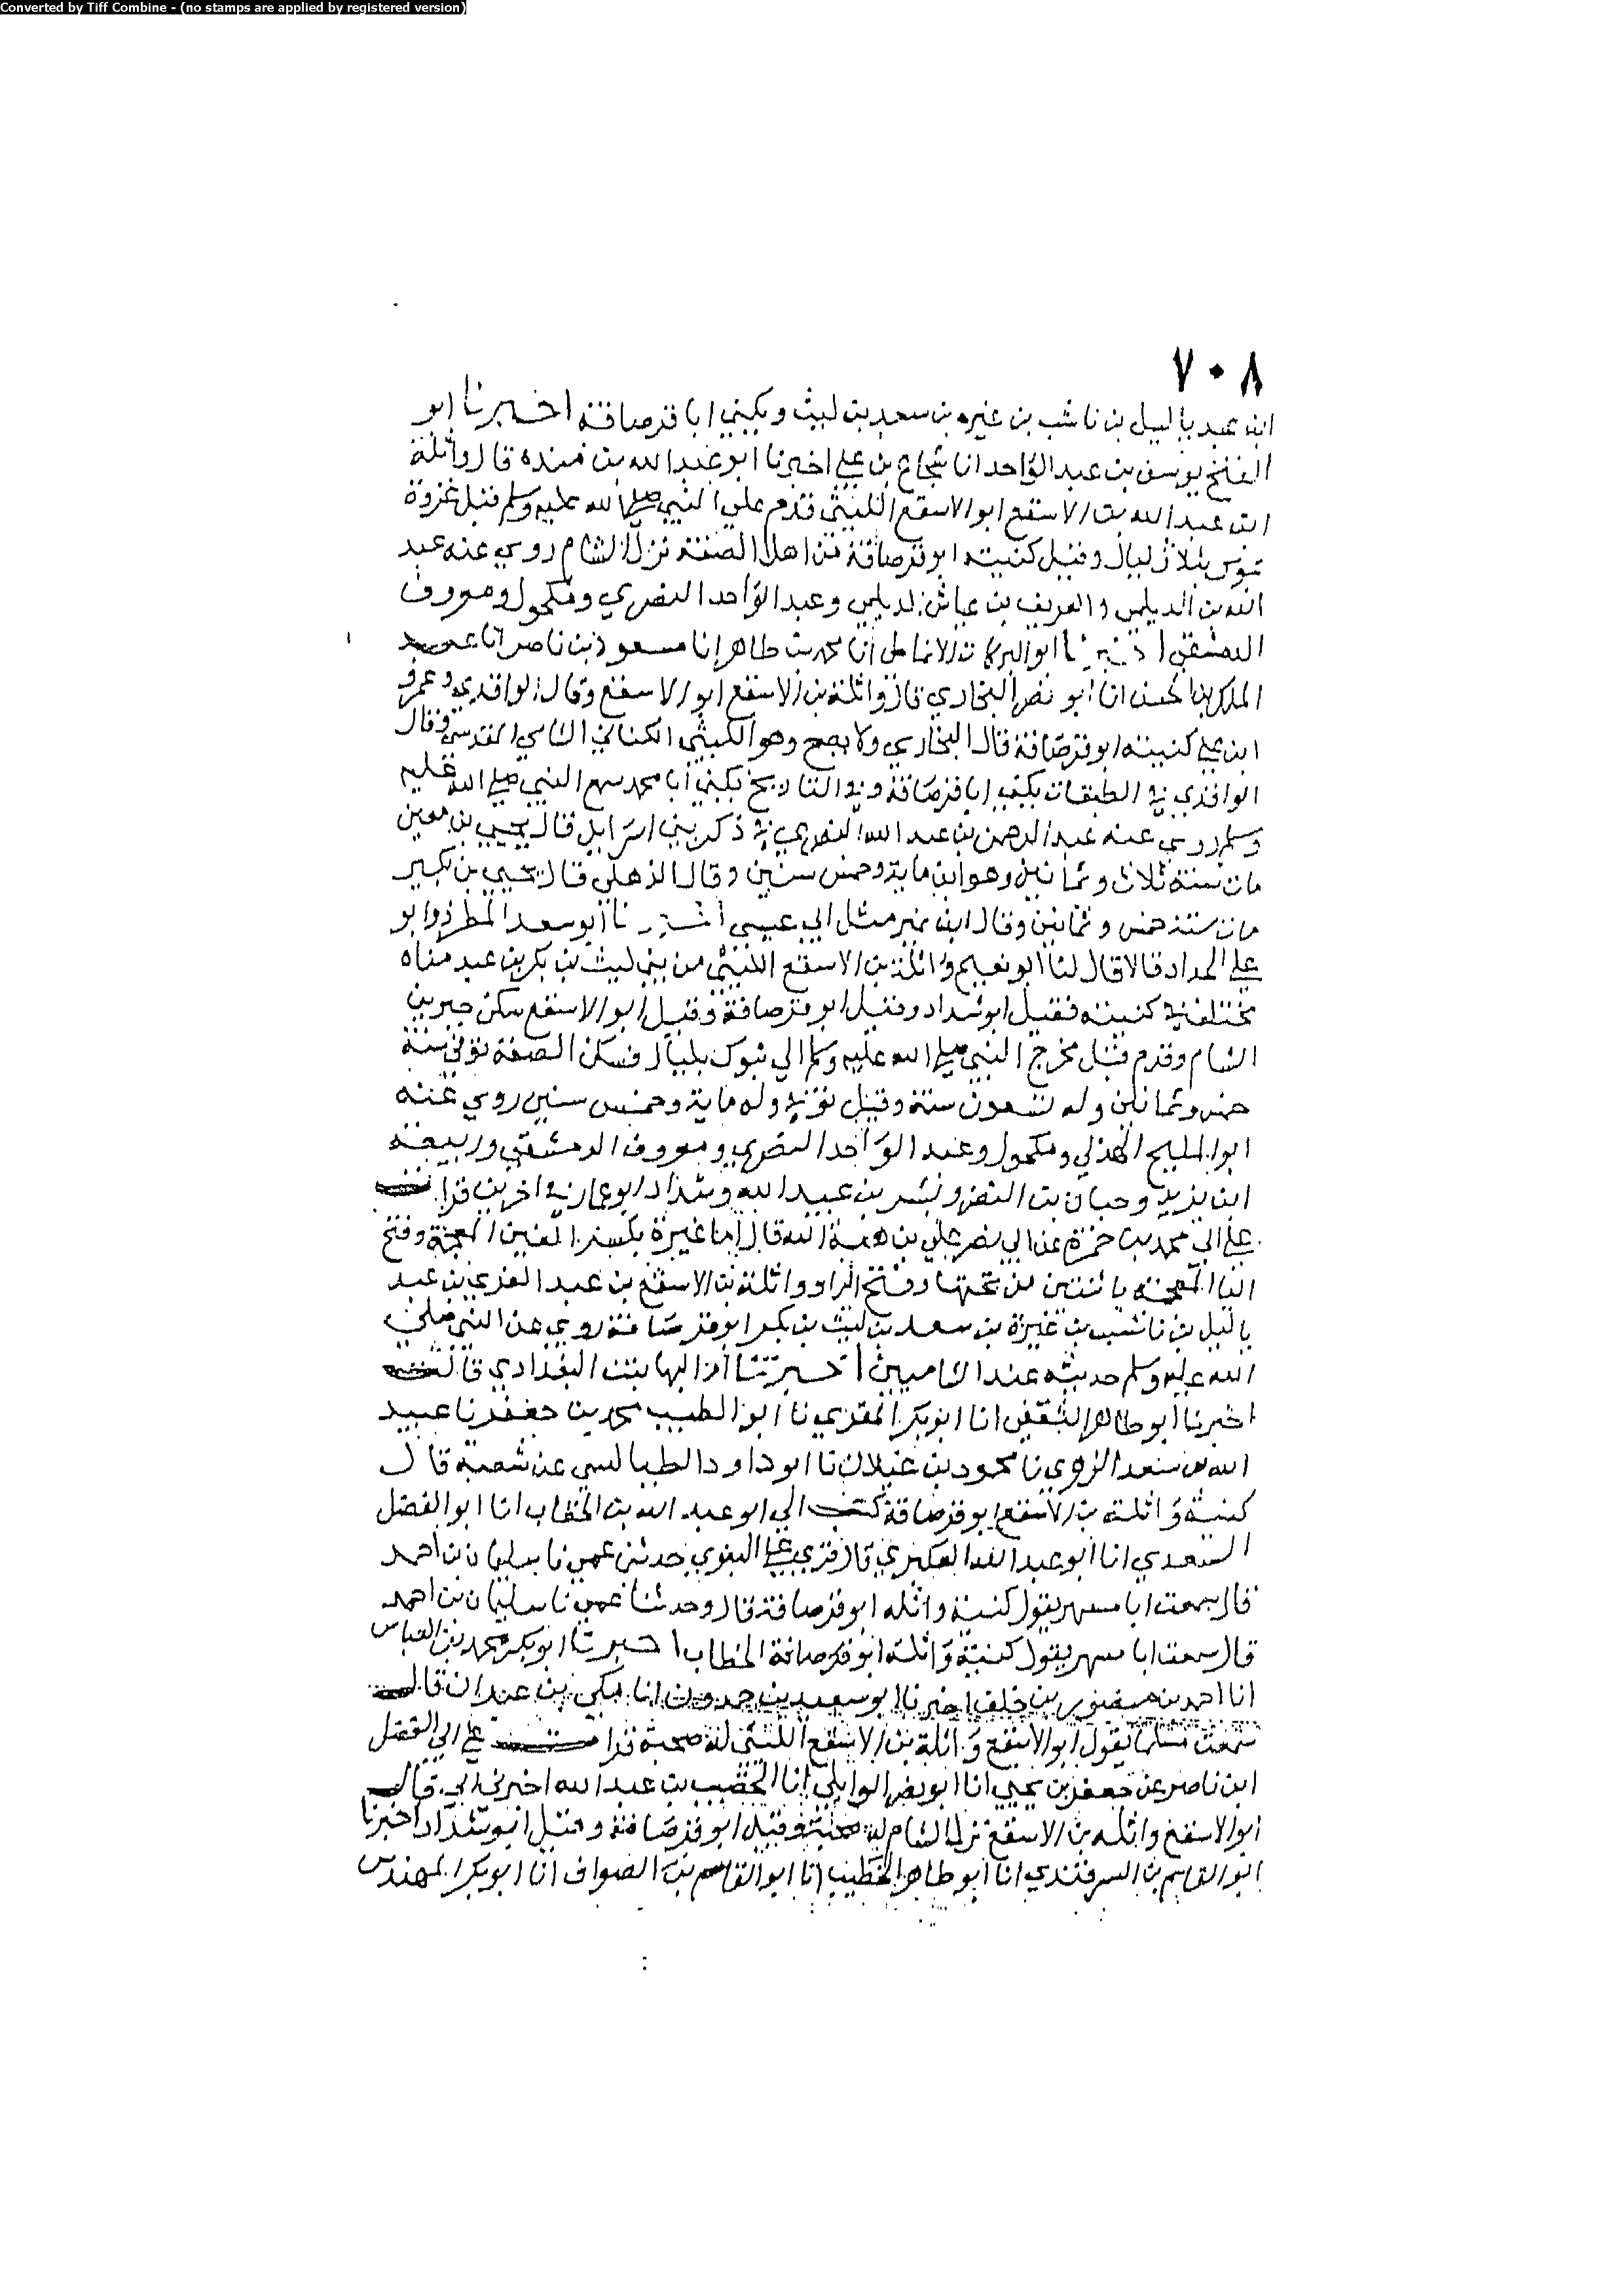 Converted by Tiff Combine - (no stamps are applied by registered version)
٧٠٨
ابن عبد ياليل بن ناشب بن غيره بن سعد بن ليث ويكني ابا قرصافة اخبرنا ابو
الفتح يوسف بن عبد الواحد انا شجاع بن علي اخبرنا ابو عبد الله بن منده قال واثلة
ابن عبد الله بن الاسقع ابو الاسقع الليثي قدم علي النبي صلي الله عليه وسلم قبل غزوة
تبوك بثلاث ليال وقيل كنيته ابو قرصافة من اهل الصفة نزل الشام روي عنه عبد
الله بن الديلمي والغريف بن عياش الديلمي وعبد الواحد النصري ومكحول ومعروف
الدمشقي اخبرنا ابو البركات الانماطي انا محمد بن طاهر انا مسعود بن ناصر انا عبد
الملك بن الحسن انا ابو نصر البخاري قال واثلة بن الاسقع ابو الاسقع وقال الواقدي وعمرو
ابن علي كنيته ابو قرصافة قال البخاري ولا يصح وهو الليثي الكناني الشامي المقدسي وقال
الواقدي في الطبقات يكني ابا قرصافة وفي التاريخ يكني ابا محمد سمع النبي صلي الله عليه
وسلم روي عنه عبد الرحمن بن عبد الله النصري في ذكر بني اسرايل قال يحيي بن معين
مات سنة ثلاث وثمانين وهو ابن ماية وخمس سنين وقال الذهلي قال يحيي بن بكير
مات سنة خمس وثمانين وقال ابن نمير مثل ابي عيسي اخبرنا ابو سعد المطرز وابو
علي الحداد قالا قال لنا ابو نعيم واثلة بن الاسقع الليثي من بني ليث بن بكر بن عبد مناه
مختلف في كنيته فقيل ابو شداد وقيل ابو قرصافة وقيل ابو الاسقع سكن جبرين
الشام وقدم قبل مخرج النبي صلي الله عليه وسلم الي تبوك بليال فسكن الصفة توفي سنة
خمس وثمانين وله تسعون سنة وقيل توفي وله ماية وخمس سنين روي عنه
ابو المليح الهذلي ومكحول وعبد الواحد النصري ومعروف الدمشقي وربيعة
ابن يزيد وحبان بن النضر وبسر بن عبيد الله وشداد ابو عمار في اخرين قرات
علي ابي محمد بن حمزة عن ابي نصر علي بن هبة الله قال اما غيرة بكسر الغين المعجمة وفتح
اليا المعجمة باثنتين من تحتها وفتح الرا وواثلة بن الاسقع بن عبد العزي بن عبد
ياليل بن ناشب بن غيرة بن سعد بن ليث بن بكر ابو قرصافة روي عن النبي صلي
الله عليه وسلم حديثه عند الشاميين اخبرتنا ام البها بنت البغدادي قالت
اخبرنا ابو طاهر الثقفي انا ابو بكر المقري نا ابو الطيب محمد بن جعفر نا عبيد
الله بن سعد الزهري نا محمود بن غيلان نا ابو داود الطيالسي عن شعبة قال
كنية واثلة بن الاسقع ابو قرصافة كتب الي ابو عبد الله بن الخطاب انا ابو الفضل
السعدي انا ابو عبد الله العكبري قال قري علي البغوي حدثني عمي نا سليمان بن احمد
قال سمعت ابا مسهر يقول كنية واثله ابو قرصافة قال وحدثنا عمي نا سليمان بن احمد
قال سمعت ابا مسهر يقول كنية واثلة ابو قرصافة الخطاب اخبرنا ابو بكر محمد بن العباس
انا احمد بن منصور بن خلف اخبرنا ابو سعيد بن حمدون انا مكي بن عبدان قال
سمعت مسلما يقول ابو الاسقع واثلة بن الاسقع الليثي له صحبة قرات علي ابي الفضل
ابن ناصر عن جعفر بن يحيي انا ابو نصر الوايلي انا الخصيب بن عبد الله اخبرني ابي قال
ابو الاسقع واثله بن الاسقع نزل الشام له صحبة وقيل ابو قرصافة وقيل ابو شداد اخبرنا
ابو القاسم بن السمرقندي انا ابو طاهر الخطيب انا ابو القاسم بن الصواف انا ابو بكر المهندس